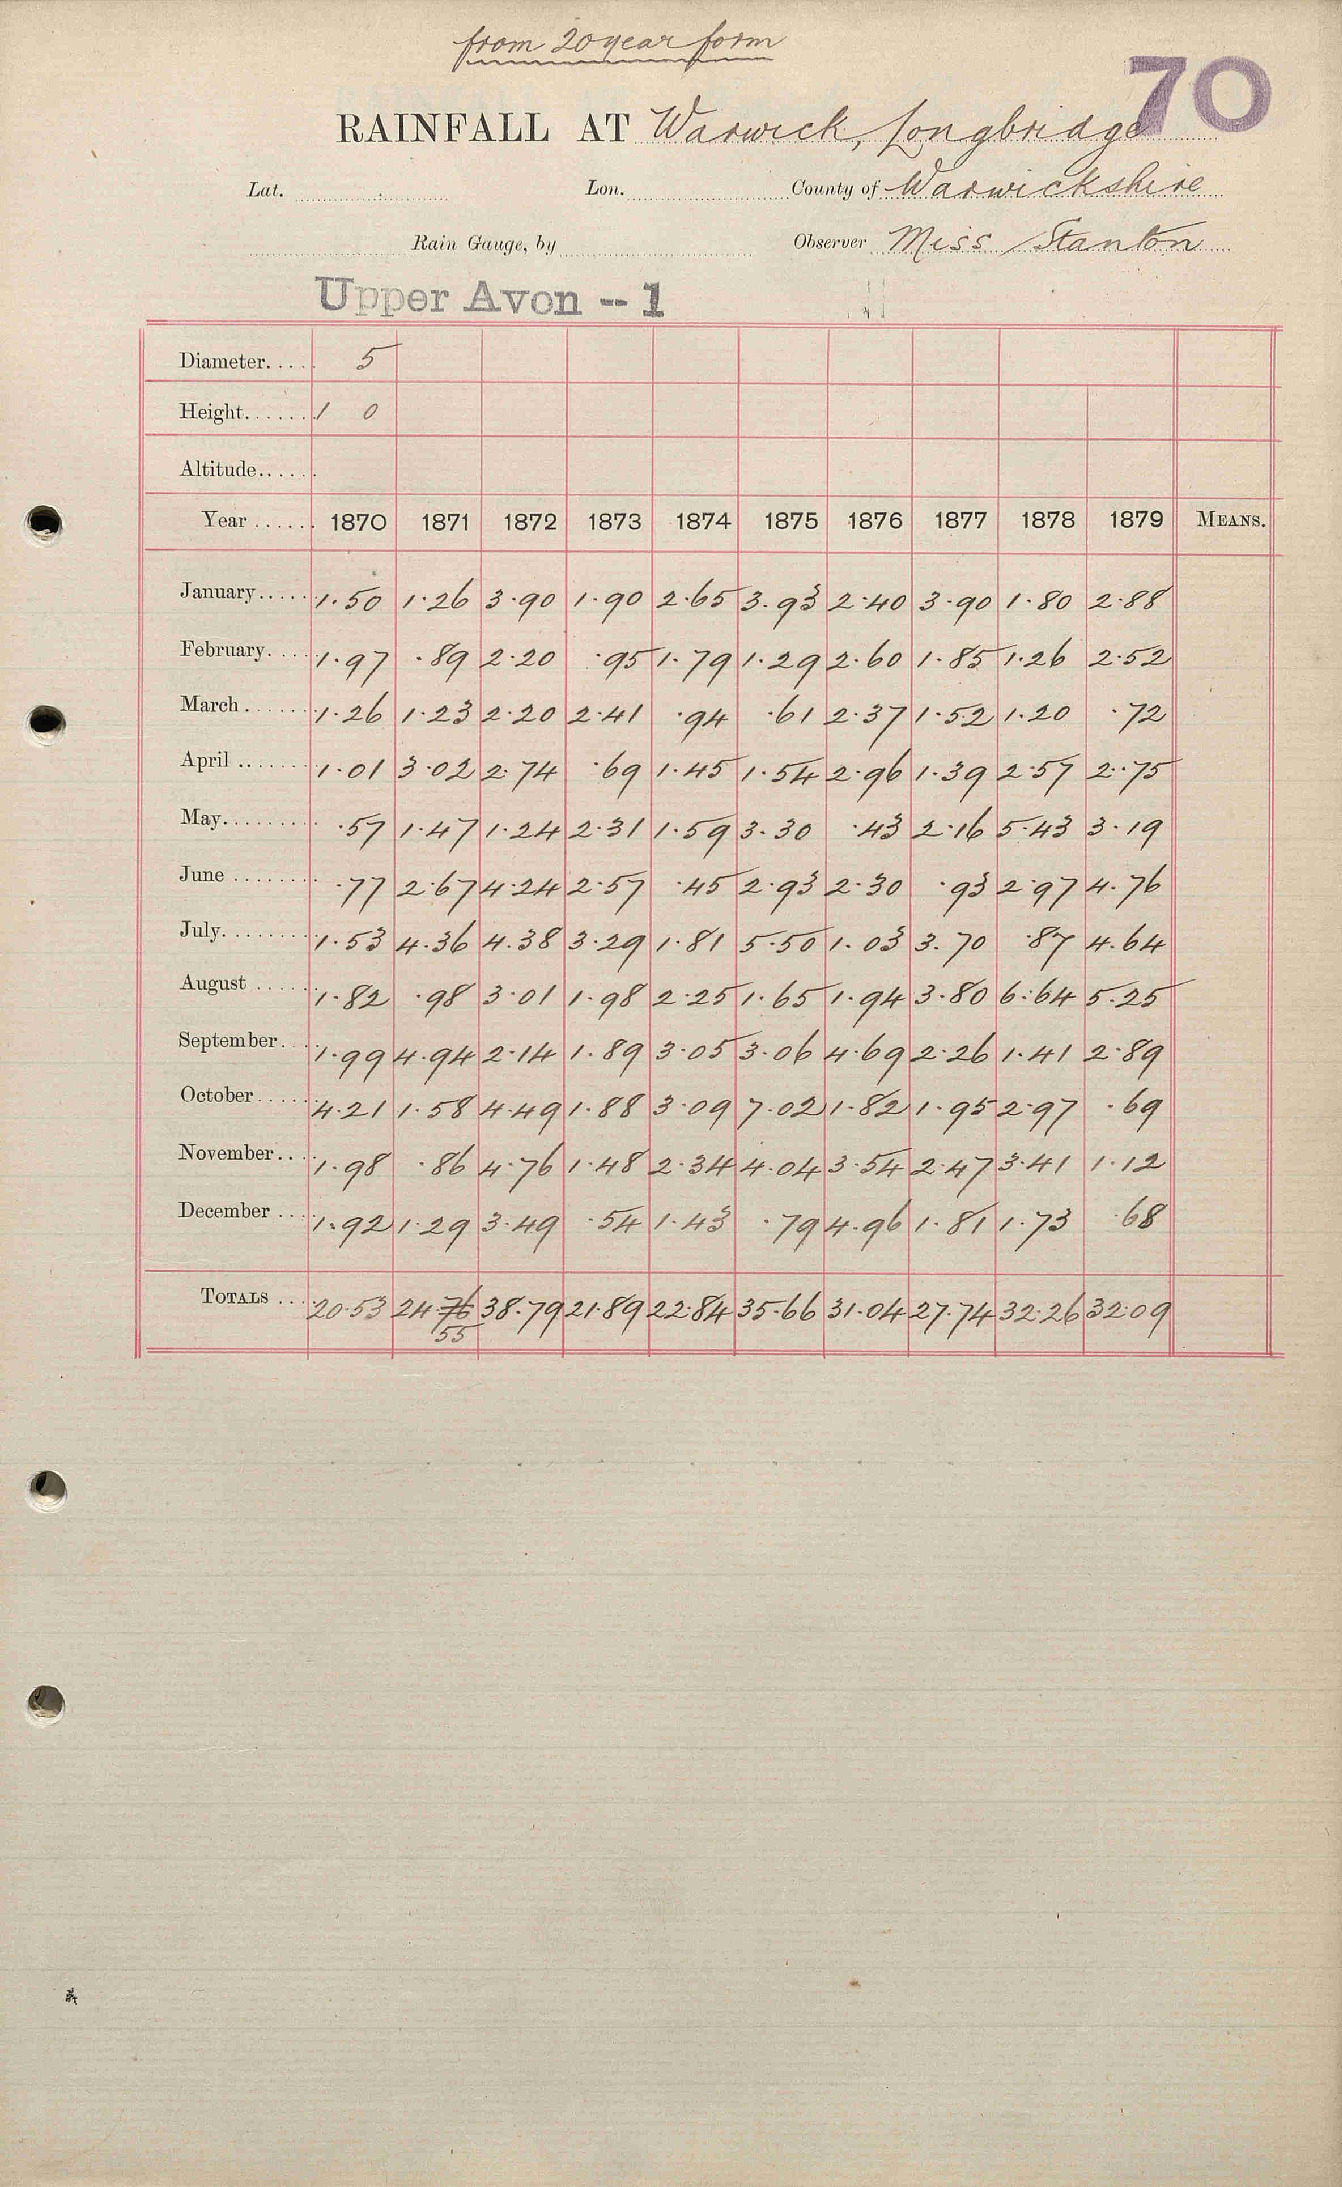 from 20 year form
70
RAINFALL AT Warwick, Longbridge
Lat. Lon. County of Warwickshire
Rain Gauge, by Observer Miss Stanton
Upper Avon -- 1
Diameter..... 5
Height...... 1 0
Altitude......
Year ...... 1870 1871 1872 1873 1874 1875 1876 1877 1878 1879 MEANS.
January..... 1.50 1.26 3.90 1.90 2.65 3.93 2.40 3.90 1.80 2.88
February.... 1.97 .89 2.20 .95 1.79 1.29 2.60 1.85 1.26 2.52
March ...... 1.26 1.23 2.20 2.41 .94 .61 2.37 1.52 1.20 .72
April ....... 1.01 3.02 2.74 .69 1.45 1.54 2.96 1.39 2.57 2.75
May......... .57 1.47 1.24 2.31 1.59 3.30 .43 2.16 5.43 3.19
June ........ .77 2.67 4.24 2.57 .45 2.93 2.30 .93 2.97 4.76
July......... 1.53 4.36 4.38 3.29 1.81 5.50 1.03 3.70 .87 4.64
August ...... 1.82 .98 3.01 1.98 2.25 1.65 1.94 3.80 6.64 5.25
September... 1.99 4.94 2.14 1.89 3.05 3.06 4.69 2.26 1.41 2.89
October...... 4.21 1.58 4.49 1.88 3.09 7.02 1.82 1.95 2.97 .69
November.... 1.98 .86 4.76 1.48 2.34 4.04 3.54 2.47 3.41 1.12
December .... 1.92 1.29 3.49 .54 1.43 .79 4.96 1.81 1.73 .68
TOTALS ... 20.53 24.76 38.79 21.89 22.84 35.66 31.04 27.74 32.26 32.09
55